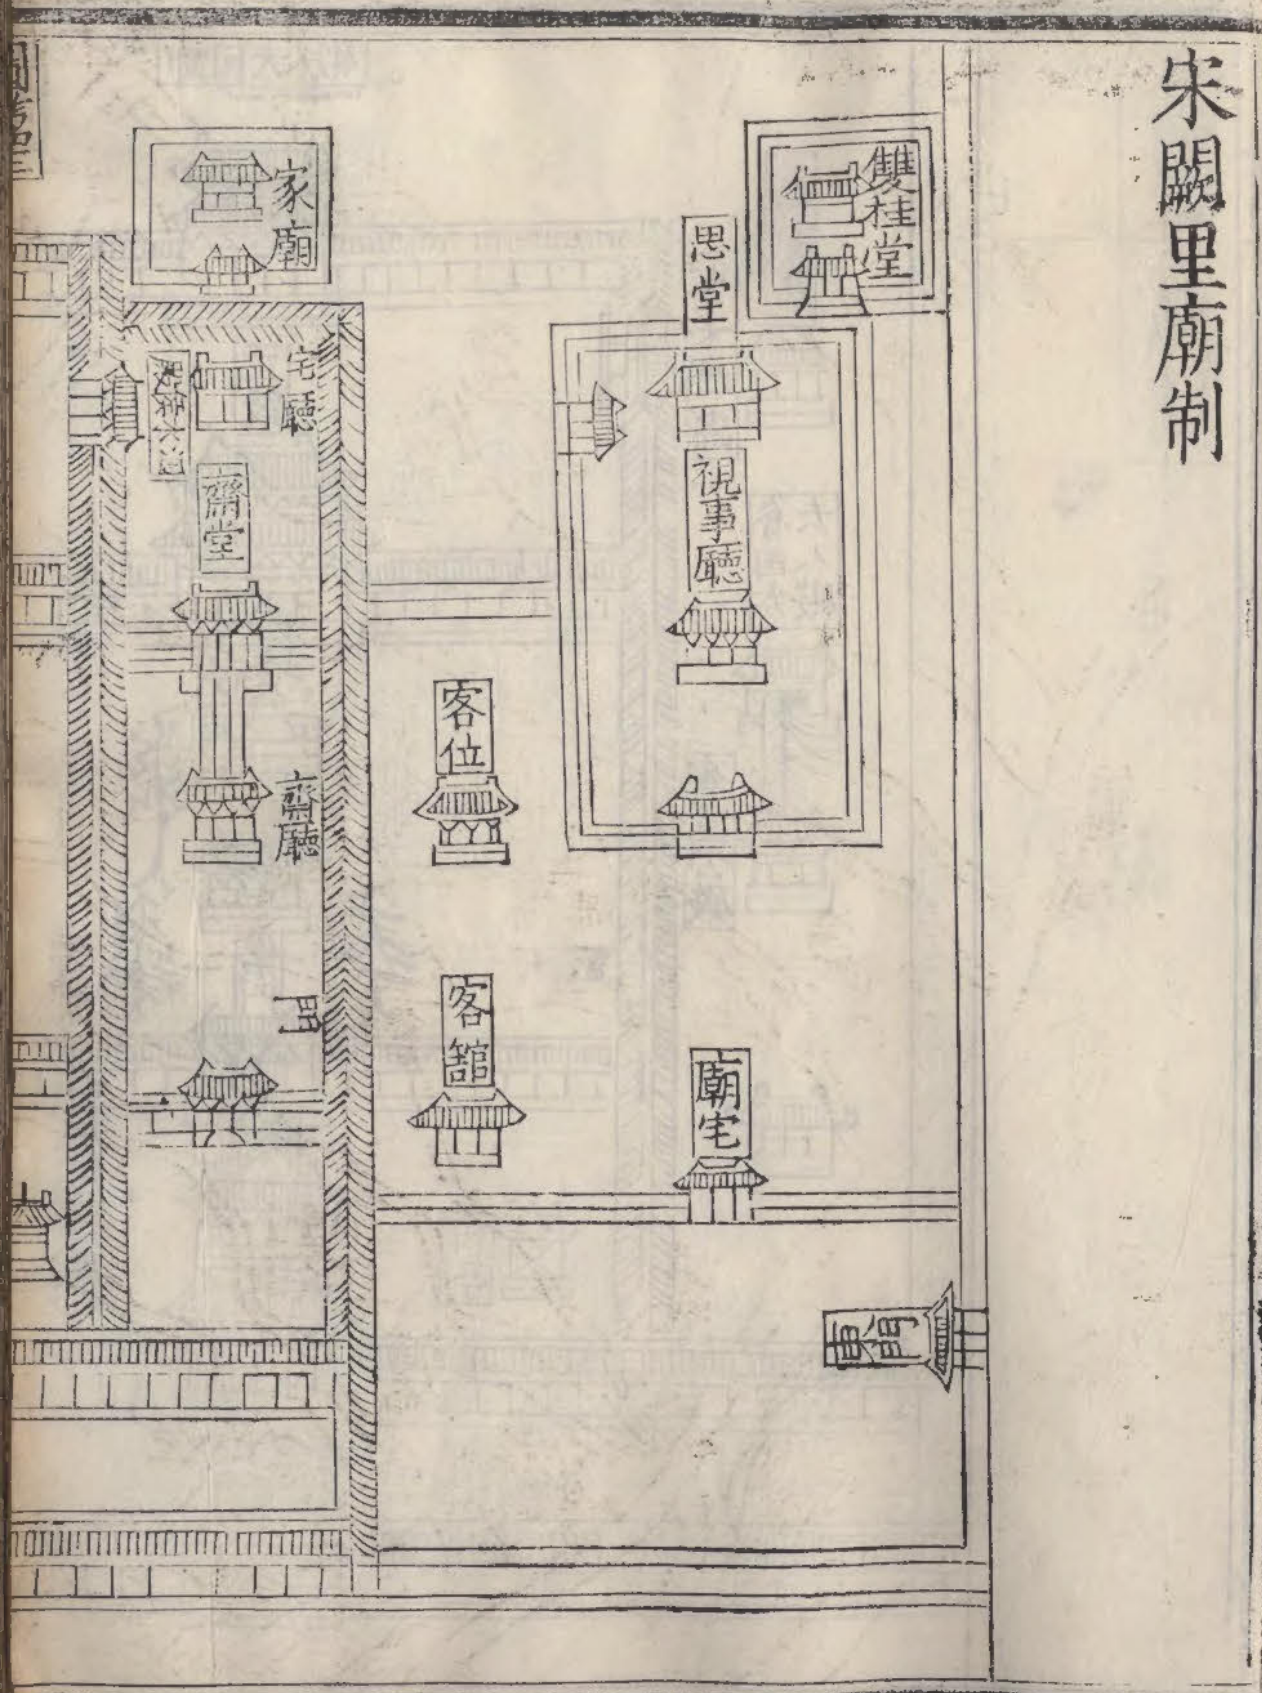 宋闕里廟制
雙桂堂
思堂
視事廳
廟宅
東門
客位
客館
家廟
宅廳
齋堂
齋廳
門